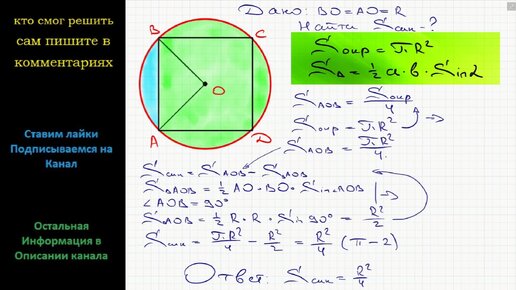 кто смог решить
сам пишите в
комментариях
Ставим лайки
Подписываемся на
Канал
Остальная
Информация в
Описании канала
B
C
O
A
D
Дано: BO=AO=R
Найти Sсин-?
Sокр = πR²
S△ = 1/2 a·b·Sinα
SAOB = Sокр/4
Sокр = πR²
SAOB = πR²/4
Sсин = SAOB - S△AOB
S△AOB = 1/2 AO·BO·Sin∠AOB
∠AOB = 90°
S△AOB = 1/2 R·R·Sin90° = R²/2
Sсин = πR²/4 - R²/2 = R²/4 (π-2)
Ответ: Sсин = R²/4